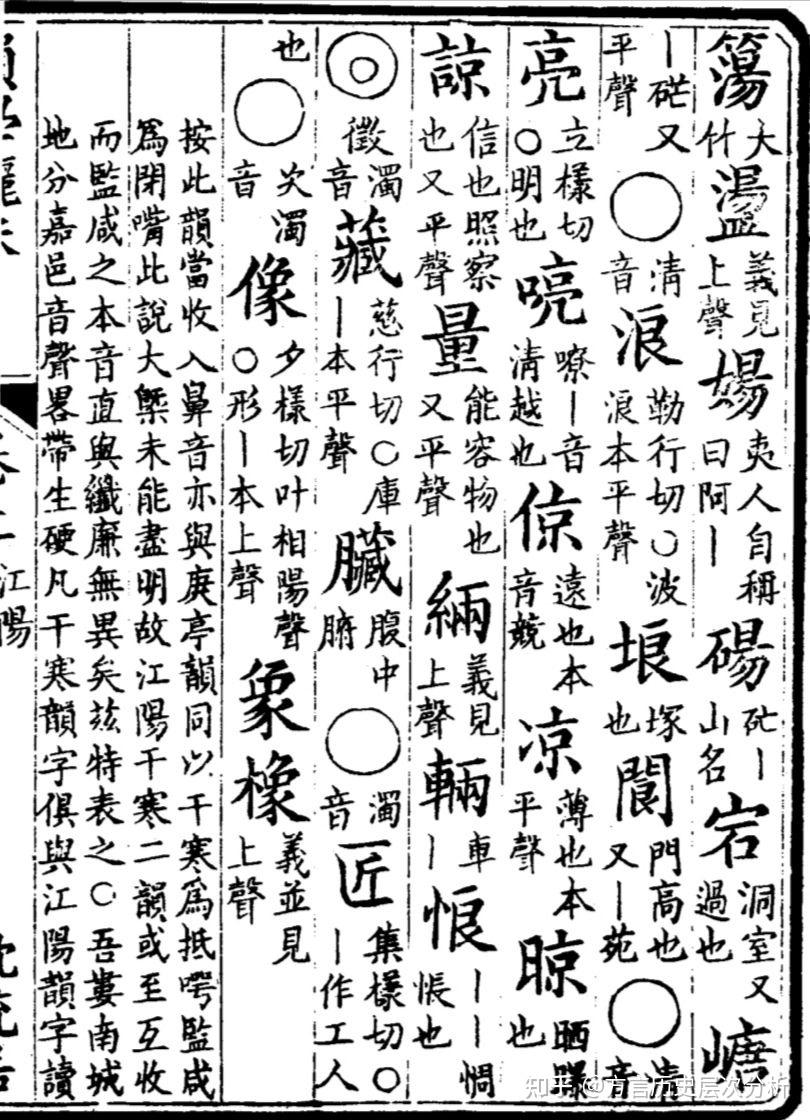 簜大竹盪義見上聲婸夷人自稱曰阿丨碭丨山名宕洞室又過也嵣
丨硭又平聲○清音浪勒行切○波浪本平聲埌塚也閬門高也又丨苑○清音
亮立樣切○明也喨嘹丨音清越也倞遠也本音競凉薄也本平聲晾晒㬥也
諒信也照察也又平聲量能容物也又平聲緉義見上聲輛車丨悢丨丨惆悵也
◎徵濁音藏慈行切○庫丨本平聲臟腹中腑○濁音匠集樣切○丨作工人
也○次濁音像夕樣切叶相陽聲○形丨本上聲象橡義並見上聲
按此韻當收入鼻音亦與庚亭韻同以干寒爲抵㗁監咸
爲閉嘴此說大槩未能盡明故江陽干寒二韻或至互收
而監咸之本音直與纖廉無異矣茲特表之○吾婁南城
地分嘉邑音聲畧帶生硬凡干寒韻字俱與江陽韻字讀
江陽
知乎 @方言历史层次分析